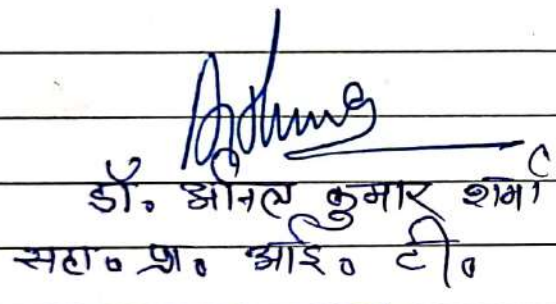 डॉ० अनिल कुमार शर्मा
सहा० प्रा० आई० टी०